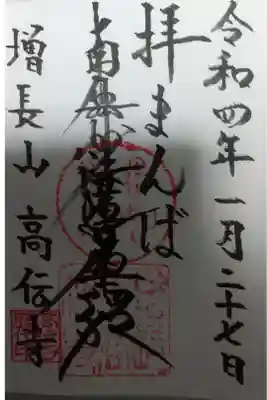 令和四年一月二十七日
拝まんば
南無妙法蓮華経
増長山 高伝寺